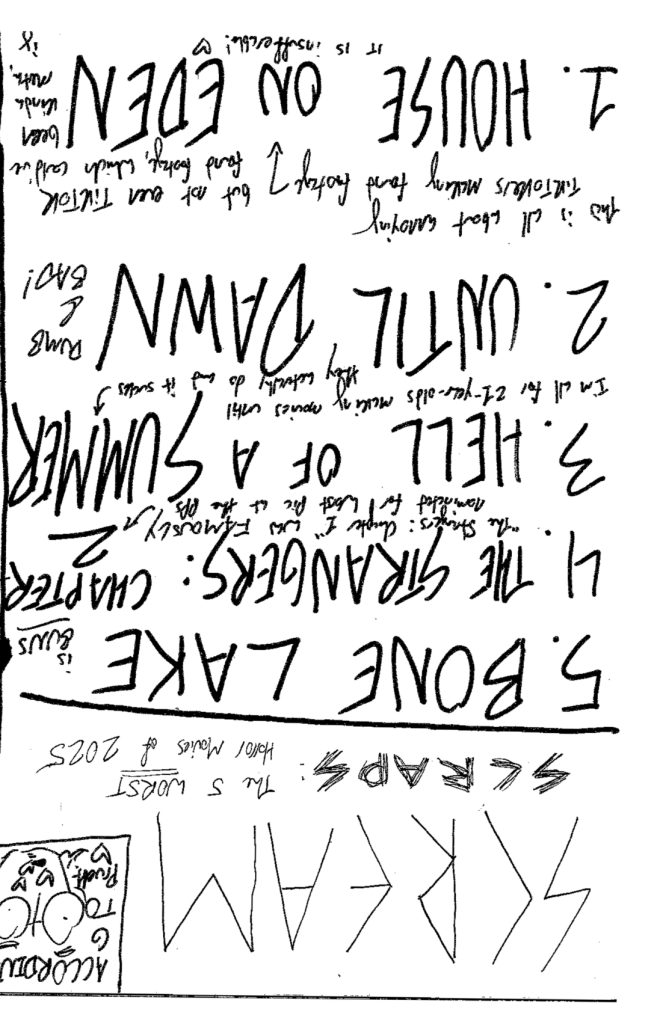 SCREAM
ACCORDIN
G
TO
SCRAPS:
The 5 WORST
Horror Movies of 2025
5. BONE LAKE
is
BUNS
4. THE STRANGERS: CHAPTER
2
"The Strangers: Chapter 1" was FAMOUSLY
nominated for Worst Pic at the PPs
3. HELL OF A SUMMER
I'm all for 21-year-olds making movies until
they actually do and it sucks
2. UNTIL DAWN
DUMB
&
BAD!
This is all about annoying
TikTokers making found footage
but not even TikTok
found footage, which could've
been
kinda
meta.
1. HOUSE ON EDEN
it is insufferable! ♡